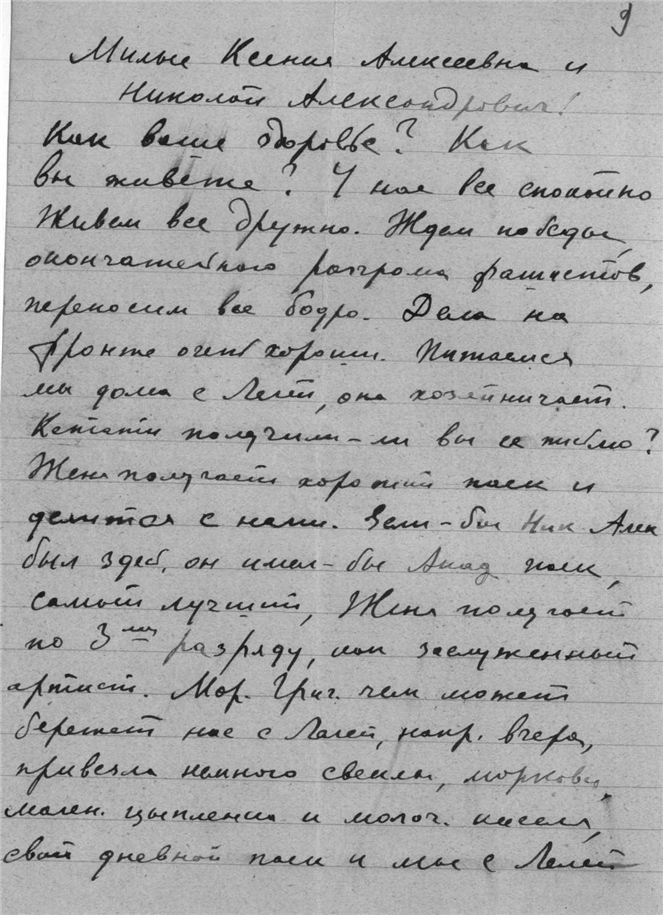 9
Милые Ксения Алексеевна и
Николай Александрович!
Как ваше здоровье? Как
вы живёте? У нас все спокойно
Живем все дружно. Ждем победы,
окончательного разгрома фашистов,
переносим все бодро. Дела на
фронте очень хороши. Питаемся
мы дома с Лелей, она хозяйничает.
Кстати получили-ли вы ее письмо?
Женя получает хороший паек и
делится с нами. Если-бы Ник Алек
был здесь, он имел-бы Акад паек,
самый лучший, Женя получает
по 3му разряду, как заслуженный
артист. Мар. Григ. чем может
бережет нас с Лелей, напр. вчера,
привезла немного свеклы, моркови,
мален. цыпленка и молоч. киселя,
свой дневной паек и мы с Лелей